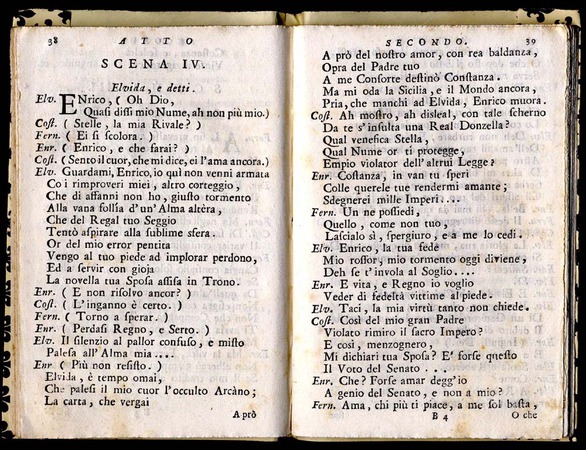 38 ATTO
SCENA IV.
Elvida, e detti.
Elv. ENrico, ( Oh Dio,
Quasi dissi mio Nume, ah non più mio.)
Cost. ( Stelle, la mia Rivale? )
Fern. ( Ei si scolora. )
Enr. ( Enrico, e che farai? )
Cost. (Sento il cuor, che mi dice, ei l'ama ancora.)
Elv. Guardami, Enrico, io quì non venni armata
Co i rimproveri miei, altro corteggio,
Che di affanni non ho, giusto tormento
Alla vana follìa d'un'Alma altèra,
Che del Regal tuo Seggio
Tentò aspirare alla sublime sfera.
Or del mio error pentita
Vengo al tuo piede ad implorar perdono,
Ed a servir con gioja
La novella tua Sposa assisa in Trono.
Enr. ( E non risolvo ancor? )
Cost. ( L'inganno è certo. )
Fern. ( Torno a sperar. )
Enr. ( Perdasi Regno, e Serto. )
Elv. Il silenzio al pallor confuso, e misto
Palesa all'Alma mia ....
Enr ( Più non resisto. )
Elvida, è tempo omai,
Che palesi il mio cuor l'occulto Arcàno;
La carta, che vergai
A prò
SECONDO. 39
A prò del nostro amor, con rea baldanza,
Opra del Padre tuo
A me Consorte destinò Constanza.
Ma mi oda la Sicilia, e il Mondo ancora,
Pria, che manchi ad Elvida, Enrico muora.
Cost. Ah mostro, ah disleal, con tale scherno
Da te s'insulta una Real Donzella?
Qual venefica Stella,
Qual Nume or ti protegge,
Empio violator dell'altrui Legge?
Enr. Costanza, in van tu speri
Colle querele tue rendermi amante;
Sdegnerei mille Imperi....
Fern. Un ne possiedi,
Quello, come non tuo,
Lascialo sì, spergiuro, e a me lo cedi.
Elv. Enrico, la tua fede
Mio rossor, mio tormento oggi diviene,
Deh se t'invola al Soglio....
Enr. E vita, e Regno io voglio
Veder di fedeltà vittime al piede.
Elv. Taci, la mia virtù tanto non chiede.
Cost. Così del mio gran Padre
Violato rimiro il sacro Impero?
E così, menzognero,
Mi dichiari tua Sposa? E' forse questo
Il Voto del Senato ...
Enr. Che? Forse amar degg'io
A genio del Senato, e non a mio?
Fern. Ama, chi più ti piace, a me sol basta,
B 4 O che